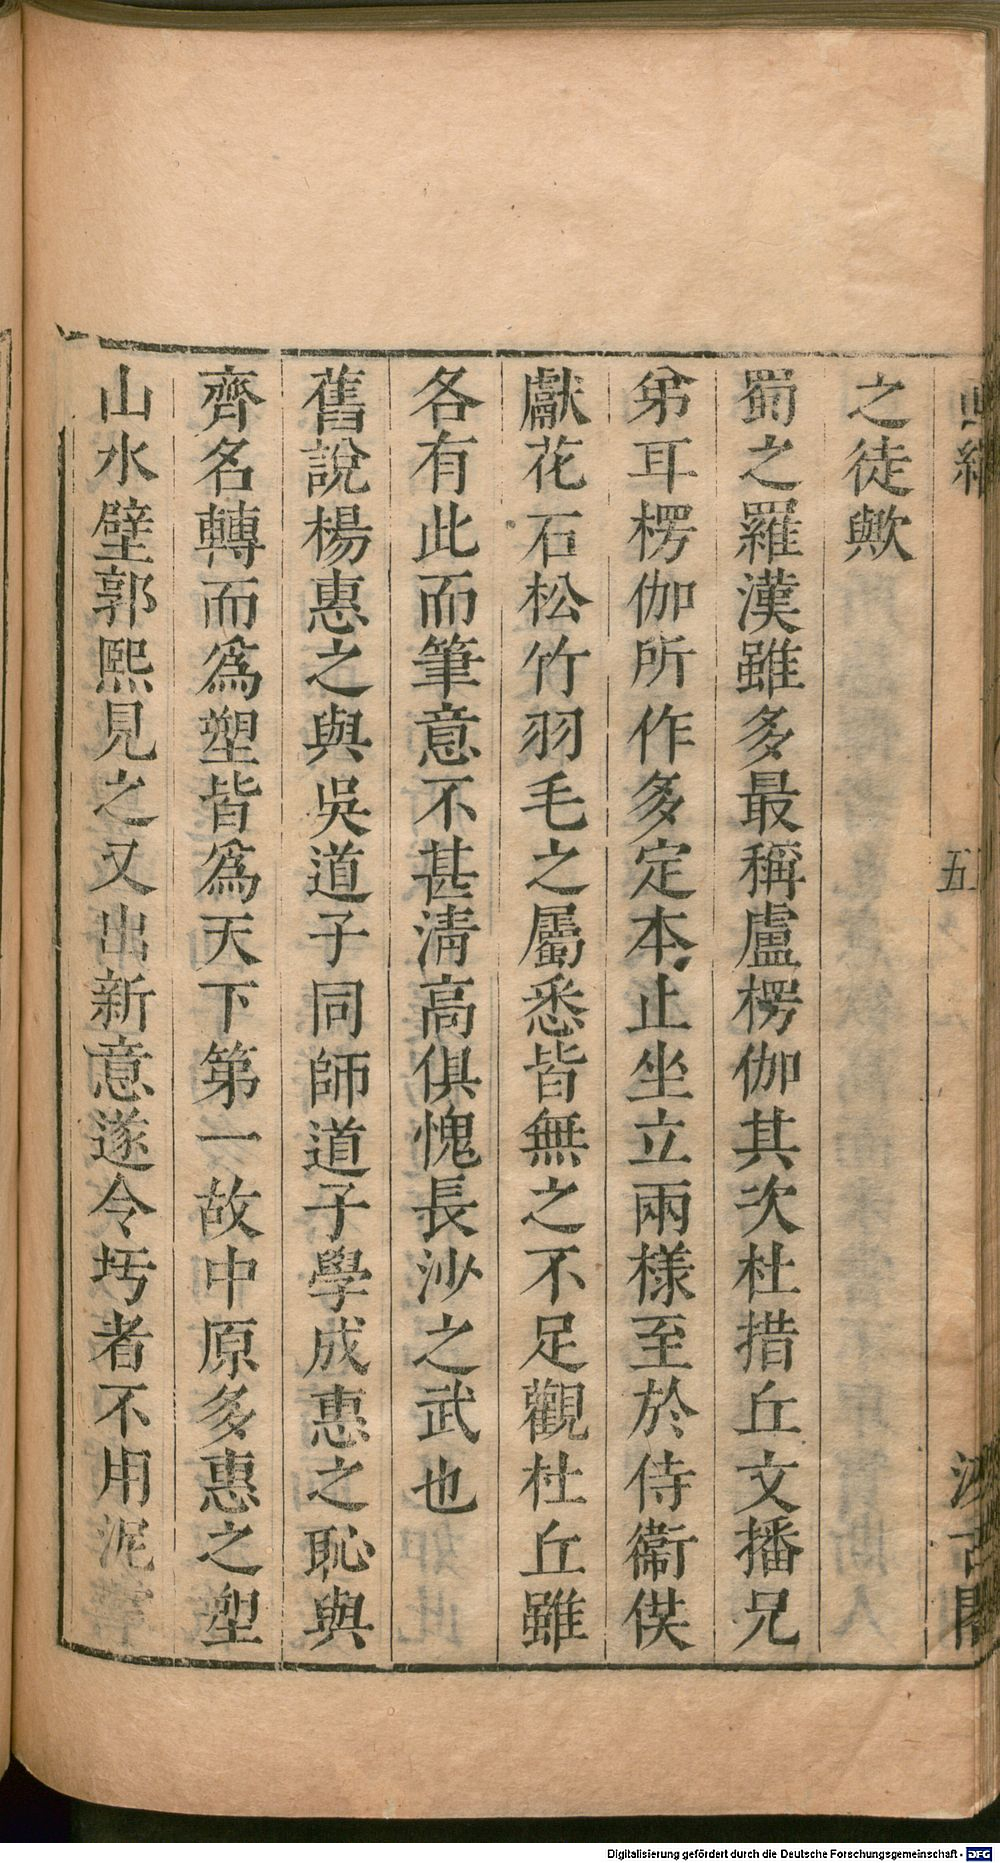 之徒歟
蜀之羅漢雖多最稱盧楞伽其次杜措丘文播兄
弟耳楞伽所作多定本止坐立兩樣至於侍衞供
獻花石松竹羽毛之屬悉皆無之不足觀杜丘雖
各有此而筆意不甚淸高俱愧長沙之武也
舊說楊惠之與吳道子同師道子學成惠之恥與
齊名轉而爲塑皆爲天下第一故中原多惠之塑
山水壁郭熙見之又出新意遂令圬者不用泥
五
Digitalisierung gefördert durch die Deutsche Forschungsgemeinschaft - DFG